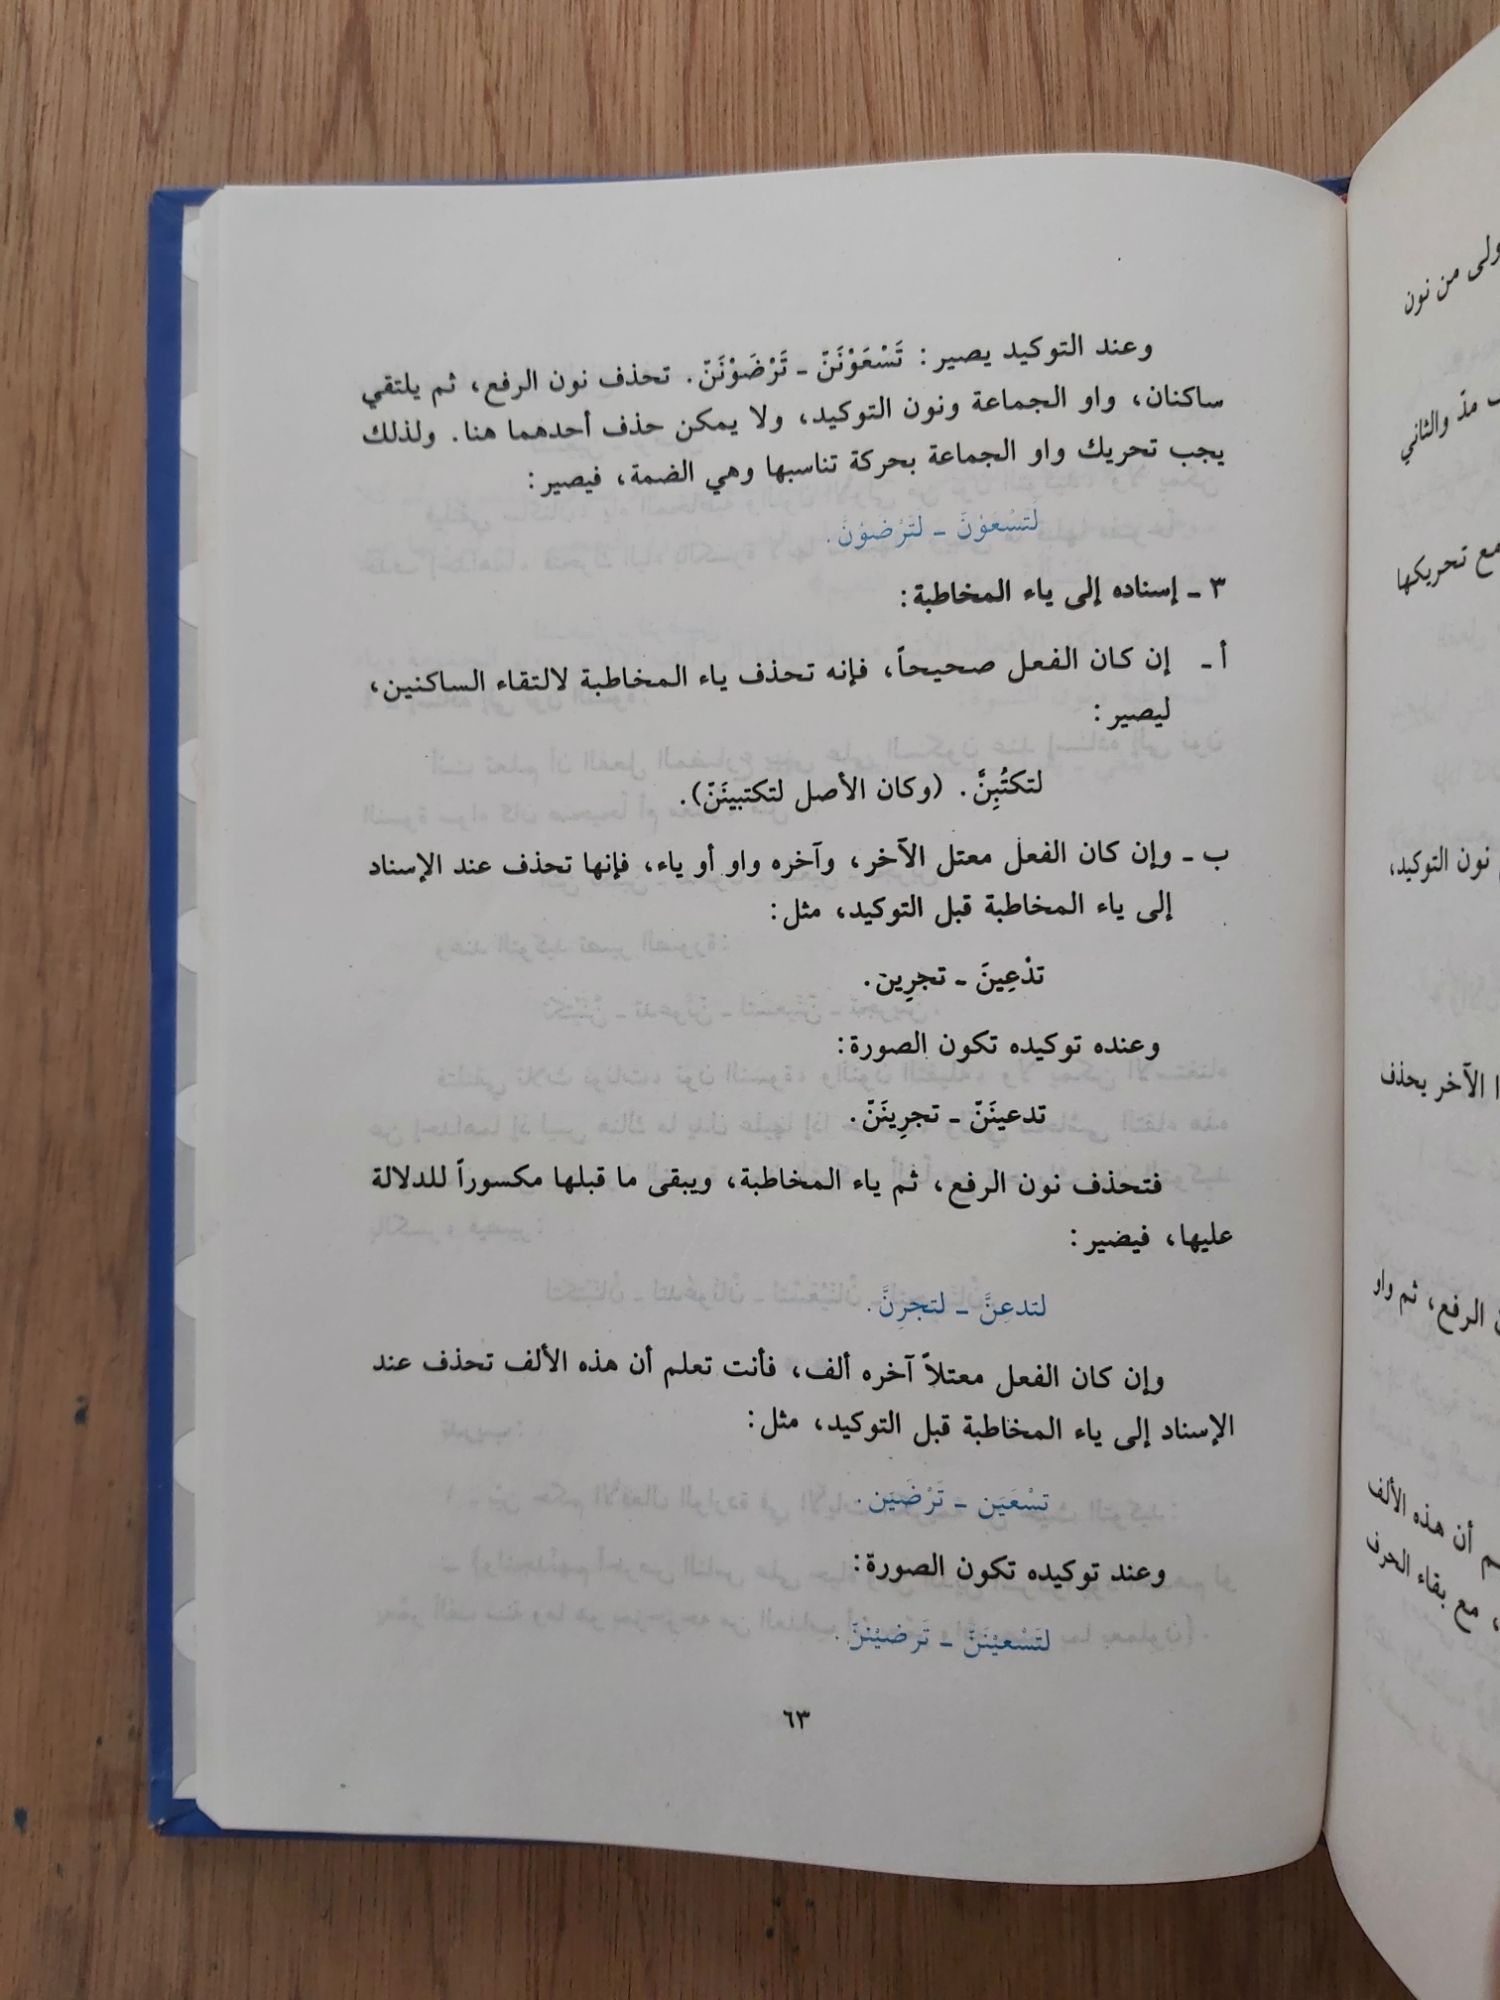 وعند التوكيد يصير: تَسْعَوْنَنّ ـ تَرْضَوْنَنّ. تحذف نون الرفع، ثم يلتقي
ساكنان، واو الجماعة ونون التوكيد، ولا يمكن حذف أحدهما هنا. ولذلك
يجب تحريك واو الجماعة بحركة تناسبها وهي الضمة، فيصير:
لَتَسْعَوُنَّ ـ لَتَرْضوُنَّ.
٣ ـ إسناده إلى ياء المخاطبة:
أ ـ إن كان الفعل صحيحاً، فإنه تحذف ياء المخاطبة لالتقاء الساكنين،
ليصير:
لتكتُبِنَّ. (وكان الأصل لتكتبينَنّ).
ب ـ وإن كان الفعل معتل الآخر، وآخره واو أو ياء، فإنها تحذف عند الإسناد
إلى ياء المخاطبة قبل التوكيد، مثل:
تدْعِينَ ـ تجرِين.
وعنده توكيده تكون الصورة:
تدعينَنّ ـ تجرِينَنّ.
فتحذف نون الرفع، ثم ياء المخاطبة، ويبقى ما قبلها مكسوراً للدلالة
عليها، فيضير:
لتدعِنَّ ـ لتجرِنَّ.
وإن كان الفعل معتلاً آخره ألف، فأنت تعلم أن هذه الألف تحذف عند
الإسناد إلى ياء المخاطبة قبل التوكيد، مثل:
تسْعَين ـ تَرْضَيْن.
وعند توكيده تكون الصورة:
لتَسْعيْنَنَّ ـ تَرضيْننَّ.
٦٣
ولى من نون
مدّ والثاني
مع تحريكها
نون التوكيد،
الآخر يحذف
الرفع، ثم واو
أن هذه الألف
مع بقاء الحرف